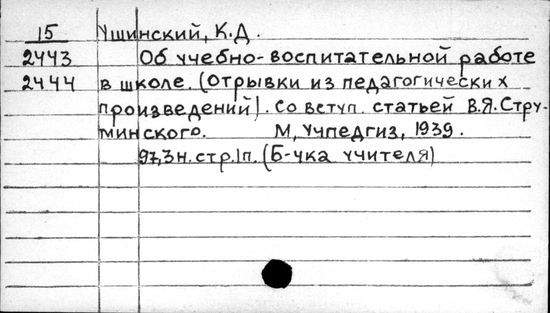 15 Ушинский, К.Д.
2443 Об учебно-воспитательной работе
2444 в школе. (Отрывки из педагогических
произведений). Со вступ. статьей В.Я. Стру-
минского. М, Учпедгиз, 1939.
97,3н. стр. 1п. (Б-чка учителя)